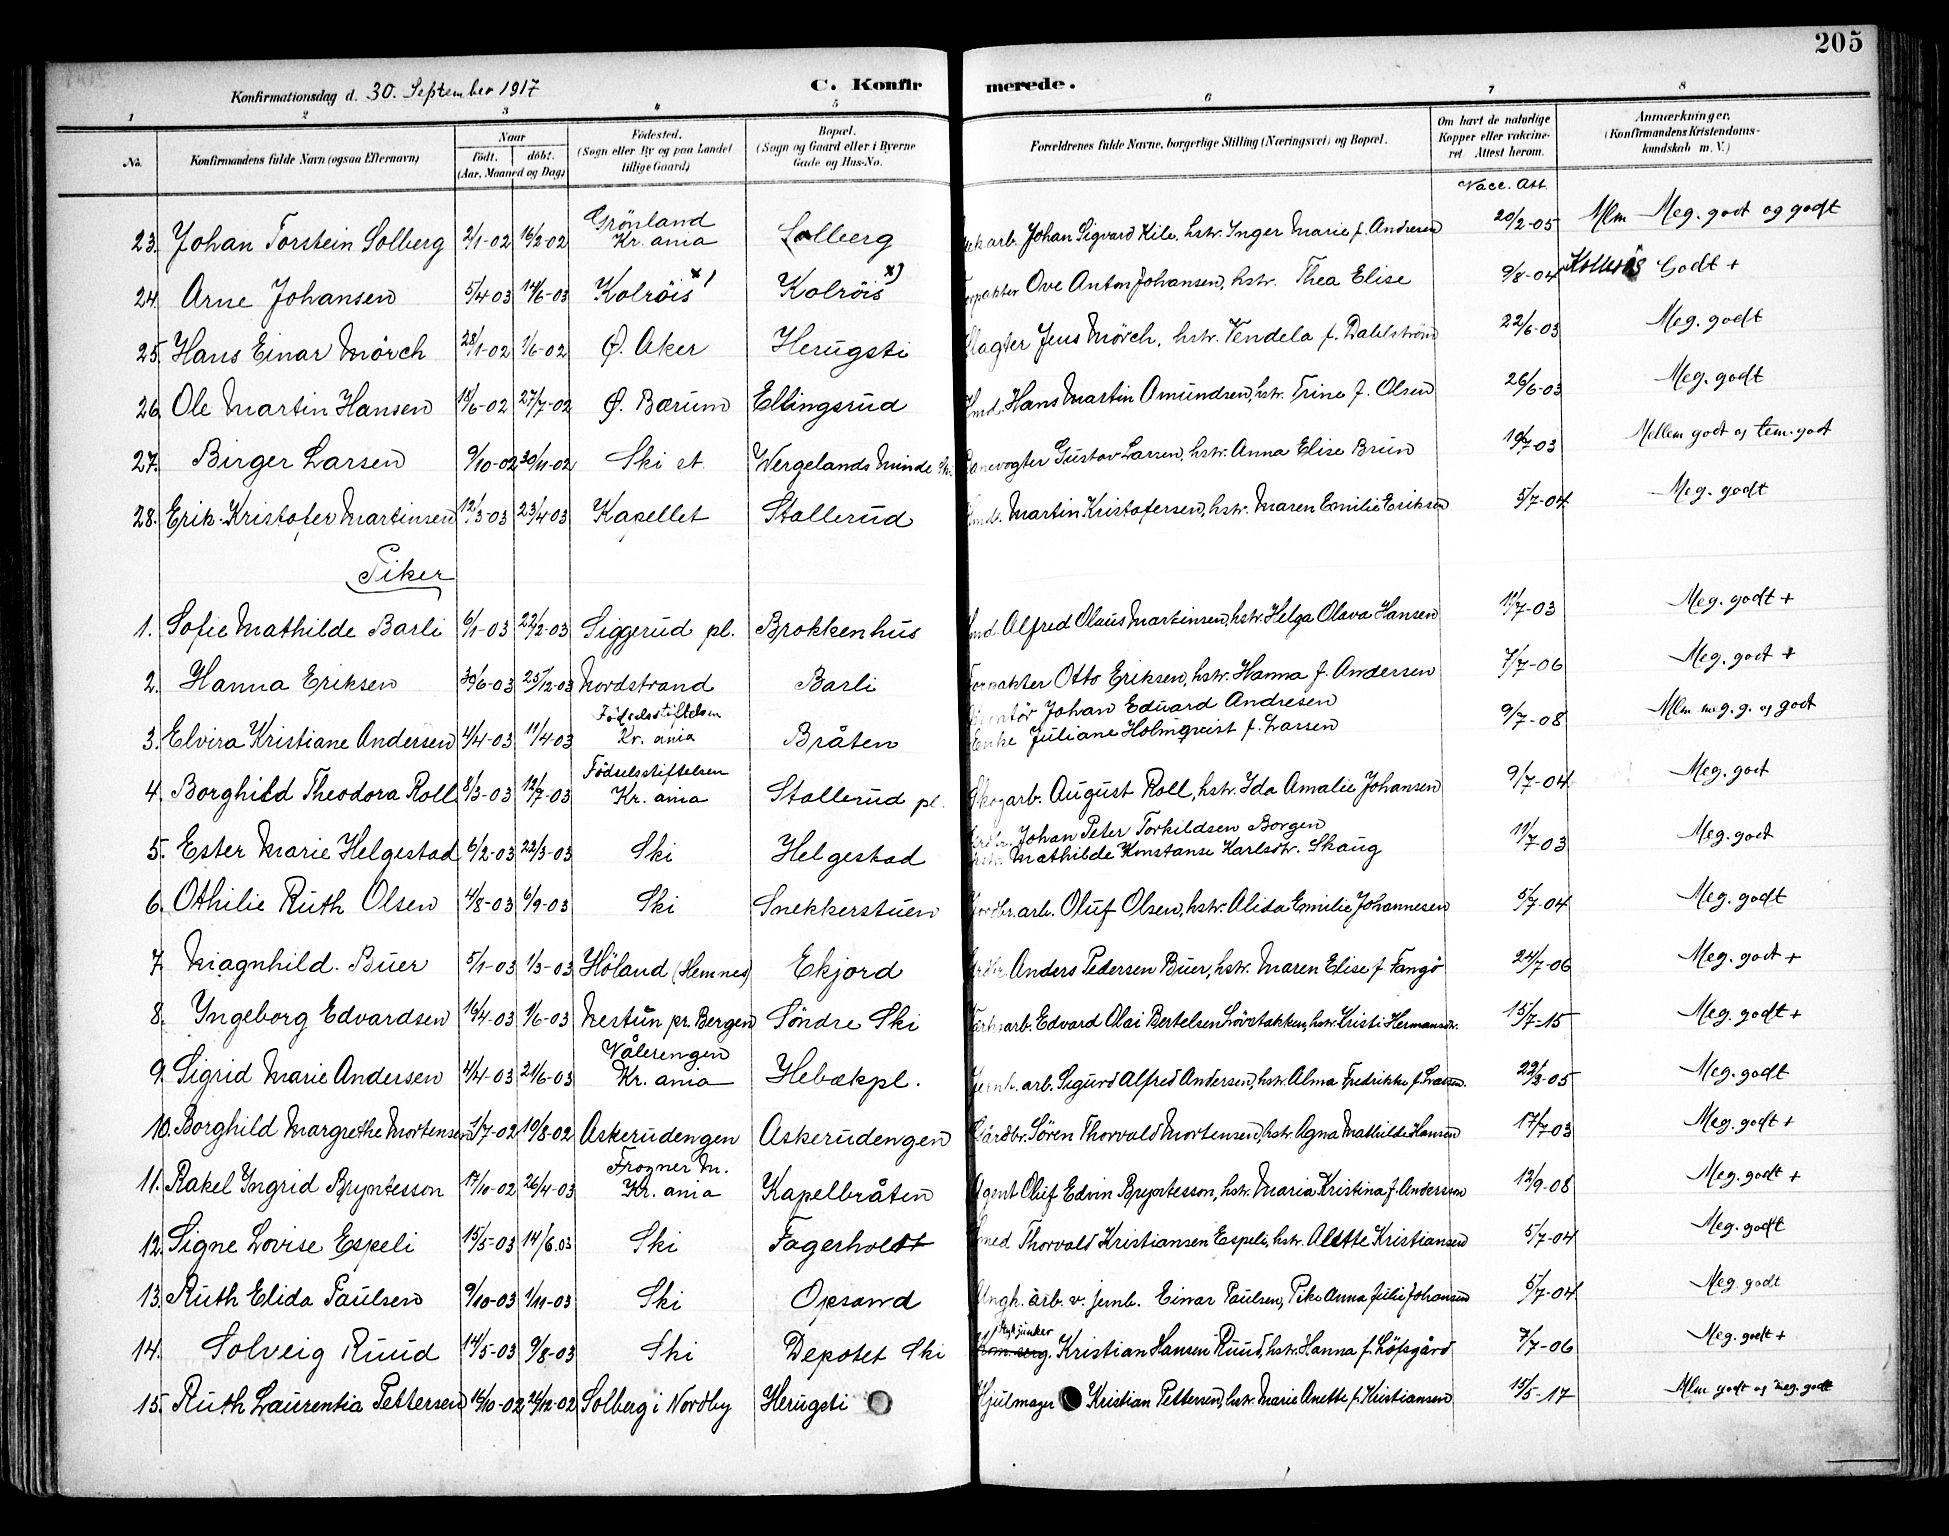 205
Konfirmationsdag d. 30. September 1917 C. Konfirmerede.
1 2 3 4 5 6 7 8
No. Konfirmandens fulde Navn (ogsaa Efternavn) Naar født. døbt. (Aar, Maaned og Dag) Fødested. (Sogn eller By og paa Landet tillige Gaard) Bopæl. (Sogn og Gaard eller i Byerne Gade og Hus-No. Forældrenes fulde Navne, borgerlige Stilling (Næringsvei) og Bopæl. Om havt de naturlige Kopper eller vakcineret. Attest herom. Anmærkninger, (Konfirmandens Kristendomskundskab m. V.)
Vacc. Att.
23. Johan Torstein Solberg 2/1-02 16/2-02 Grönland Kr.ania Solberg arb. Johan Sigvard Kile, hstr. Inger Marie f. Andresen 20/2-05 Mlm Meg. godt og godt
24. Arne Johansen 5/4 03 14/6-03 Kolröis x) Kolröis x) Ove Anton Johansen, hstr. Thea Elise 9/8-04 Godt +
25. Hans Einar Mörch 28/1-02 1/6-02 Ø. Aker Herugsti Slagter Jens Mörch, hstr. Vendela f. Dahlström 22/6-03 Meg. godt
26. Ole Martin Hansen 18/6-02 27/7-02 Ø. Bærum Ellingsrud Smd. Hans Martin Amundsen, hstr. Trine f. Olsen 26/6-03 Meg. godt
27. Birger Larsen 9/10-02 30/11-02 Ski st. Wergelands Minde Banevogter Gustav Larsen, hstr. Anna Elise Brun 19/7-03 Mellem godt og tem. godt
28. Erik Kristofer Martinsen 12/3-03 23/4-03 Kapellet Stallerud Smd. Martin Kristofersen, hstr. Maren Emilie Eriksen 5/7-04 Meg. godt
Piker
1. Sofie Mathilde Barli 6/1-03 22/2-03 Siggerud pl. Brokkenhus Smd. Alfred Olaus Martinsen, hstr. Helga Olava Hansen 11/7-03 Meg. godt +
2. Hanna Eriksen 30/6-03 25/12-03 Nordstrand Barli Forpakter Otto Eriksen, hstr. Hanna f. Andersen 7/7-06 Meg. godt +
3. Elvira Kristiane Andersen 4/4-03 11/4-03 Födselsstiftelsen Kr.ania Bråten Johan Edvard Andresen Enke Juliane Holmqvist f. Larsen 9/7-08 Mlm meg. g. og godt
4. Borghild Theodora Roll 8/3-03 12/7-03 Födselsstiftelsen Kr.ania Stallerud pl. Skogarb. August Roll, hstr. Ida Amalie Johansen 9/7-04 Meg. godt
5. Ester Marie Helgestad 6/2-03 22/3-03 Ski Helgestad Grdbr. Johan Peter Torkildsen Borgen hstr. Mathilde Konstanse Karlsdtr. Skaug 11/7 03 Meg. godt
6. Othilie Ruth Olsen 4/8-03 6/9-03 Ski Snekkerstuen Jordbr.arb. Oluf Olsen, hstr. Alida Emilie Johannesen 5/7-04 Meg. godt
7. Magnhild Buer 5/1-03 1/3-03 Höland (Hemnes) Ekjord Grdbr. Anders Pedersen Buer, hstr. Maren Elise f. Fangö 24/7-06 Meg. godt +
8. Yngeborg Edvardsen 16/4-03 1/6-03 Nestun pr. Bergen Söndre Ski Edvard Olai Bertelsen Lövstakken, hstr. Kristi Hermansdr. 15/7-15 Meg. godt +
9. Sigrid Marie Andersen 4/4-03 21/6-03 Vålerengen Kr.ania Hebækpl. Jernb. arb. Sigurd Alfred Andersen, hstr. Alma Fredrikke f. Larsen 23/3-05 Meg. godt
10. Borghild Margrethe Mortensen 1/7-02 10/8-02 Askerudengen Askerudengen Gårdbr. Sören Thorvald Mortensen, hstr. Agna Mathilde Hansen 17/7-03 Meg. godt +
11. Rakel Yngrid Bryntesson 17/10-02 26/4-03 Frogner M. Kr.ania Kapelbråten Agent Oluf Edvin Bryntesson, hstr. Maria Kristina f. Andersson 12/9-08 Meg. godt +
12. Signe Lovise Espeli 15/5-03 14/6.03 Ski Fagerholdt Smed Thorvald Kristiansen Espeli, hstr. Alette Kristiansen 5/7-04 Meg. godt
13. Ruth Elida Paulsen 9/10-03 1/11-03 Ski Opsand Ungk. arb. v. jernb. Einar Paulsen, Pike Anna Julie Johansen 5/7-04 Meg. godt
14. Solveig Ruud 14/5-03 9/8-03 Ski Depotet Ski Kristian Hansen Ruud, hstr. Hanna f. Löfsgård 7/7-06 Meg. godt +
15. Ruth Laurentia Pettersen 16/10-02 24/12-02 Solberg i Nordby Herugsti Hjulmager Kristian Pettersen, hstr. Marie Anette f. Kristiansen 15/5-17 Mlm godt og meg. godt